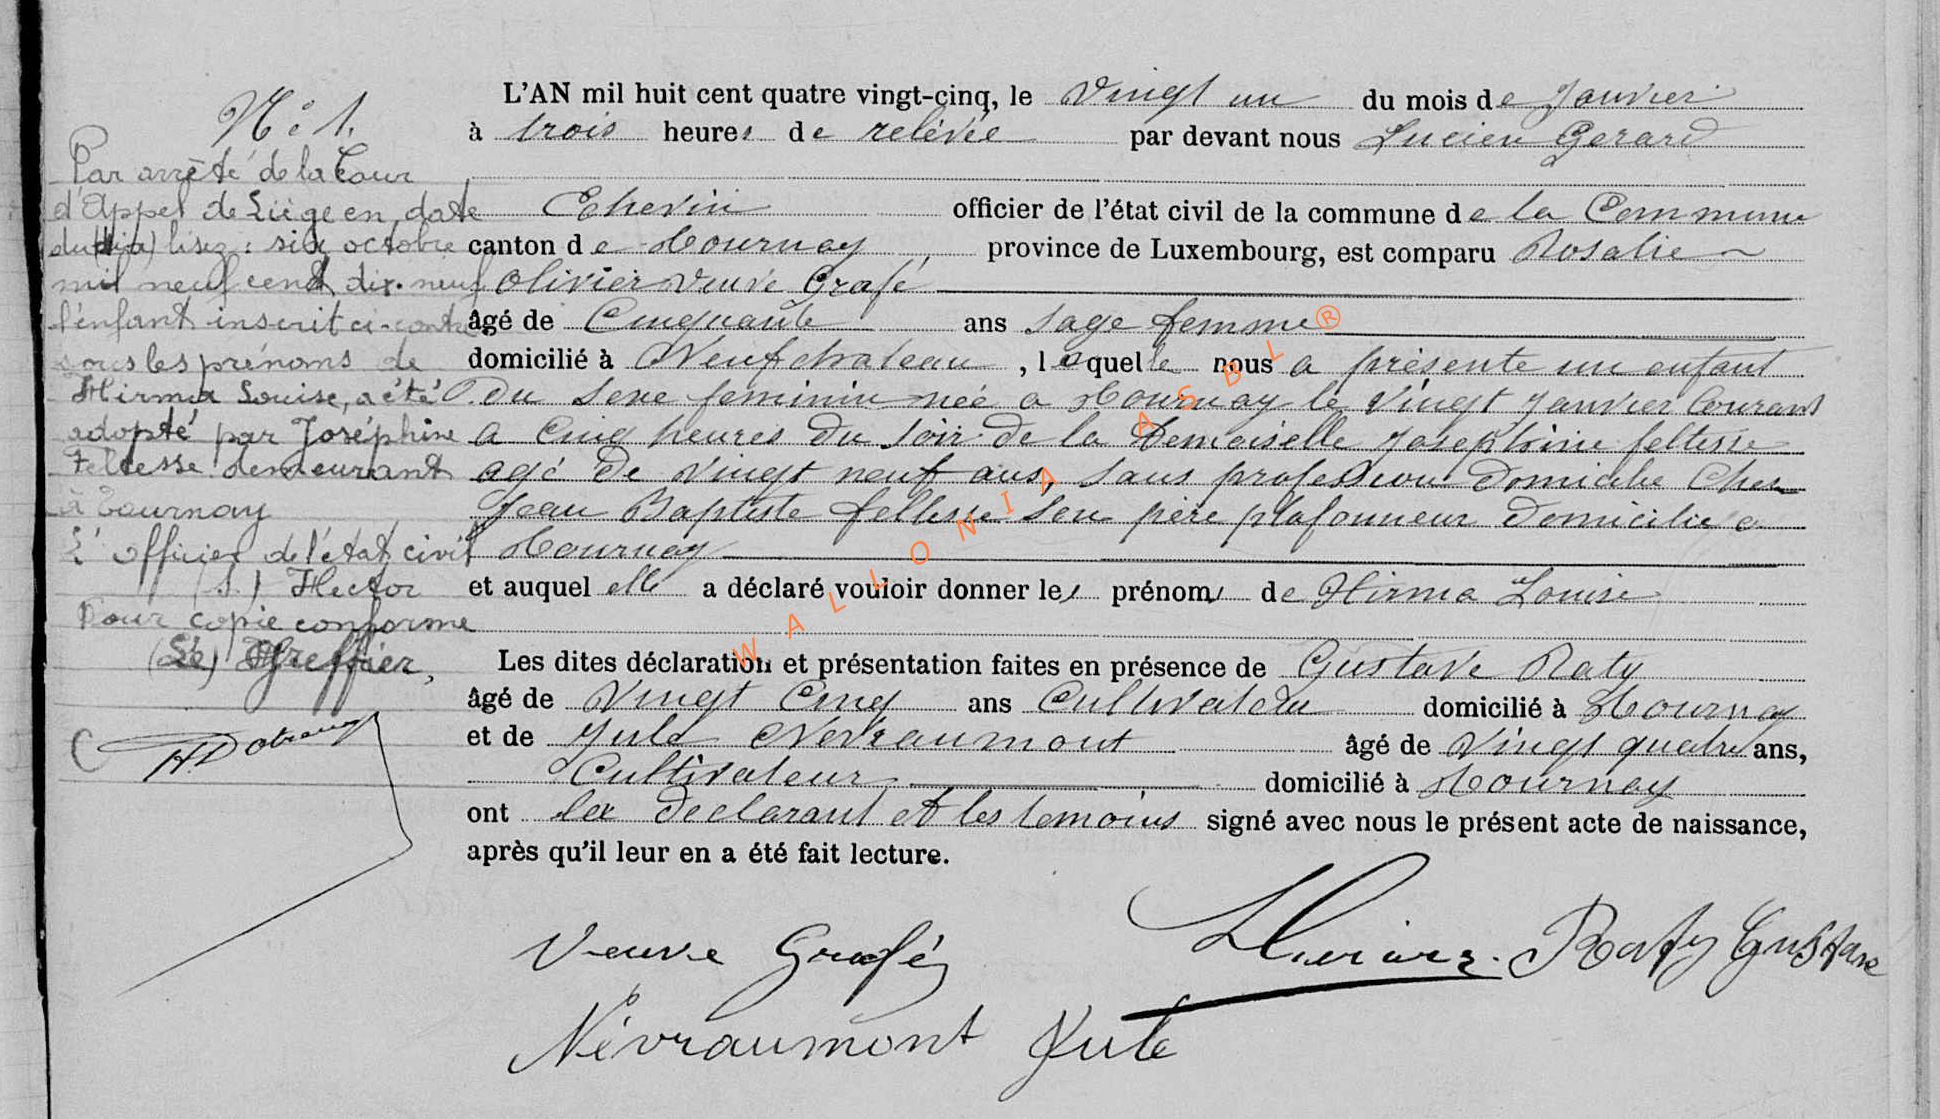 N° 1.
Par arrêté de la Cour
d'Appel de Liège en date
du (dix) lisez : six octobre
mil neuf cent dix-neuf
l'enfant inscrit ci-contre
sous les prénoms de
Hirma Louise, a été
adopté par Joséphine
Feltesse demeurant
à Tournay
L'officier de l'état civil
(s.) Hector
Pour copie conforme
(Sé) Greffier,
L'AN mil huit cent quatre vingt-cinq, le Vingt un du mois de Janvier
à trois heures de relévée par devant nous Lucien Gerard
Echevin officier de l'état civil de la commune de la Commune
canton de Tournay, province de Luxembourg, est comparu Rosalie
Olivier veuve Grafé
âgé de Cinquante ans sage femme
domicilié à Neufchateau, laquelle nous a présente un enfant
du sexe feminin née a Tournay le Vingt Janvier Courant
a Cinq heures du soir de la demoiselle Josephine feltesse
agé de Vingt neuf ans, sans profession domicilie Chez
Jean Baptiste feltesse son père plafonneur domicilié a
Tournay
et auquel elle a déclaré vouloir donner les prénoms de Hirma Louise
Les dites déclaration et présentation faites en présence de Gustave Raty
âgé de Vingt Cinq ans Cultivateur domicilié à Tournay
et de Jule Nevraumont âgé de Vingt quatre ans,
Cultivateur domicilié à Tournay
ont la declarant et les temoins signé avec nous le présent acte de naissance,
après qu'il leur en a été fait lecture.
Veuve Grafé
Raty Gustave
Névraumont Jule
WALLONIA ASBL®